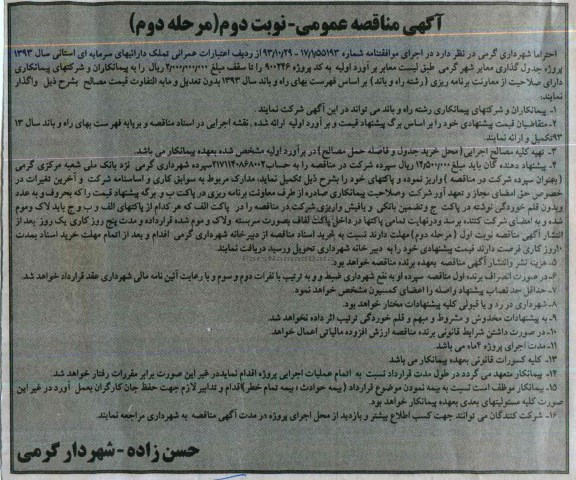 آگهی مناقصه عمومی-نوبت دوم(مرحله دوم)
احتراما شهرداری گرمی در نظر دارد در اجرای موافقتنامه شماره ۱۷/۱/۵۵۱۹۳ - ۹۳/۱۰/۲۹ از ردیف اعتبارات عمرانی تملک دارائیهای سرمایه ای استانی سال ۱۳۹۳
پروژه جدول گذاری معابر شهر گرمی طبق لیست معابر بر آورد اولیه به کد پروژه ۹۰۰۲۴۶ را تا سقف مبلغ ۲/۰۰۰/۰۰۰/۰۰۰ ریال را به پیمانکاران و شرکتهای پیمانکاری
دارای صلاحیت از معاونت برنامه ریزی ( رشته راه و باند ) بر اساس فهرست بهای راه و باند سال ۱۳۹۳ بدون تعدیل و مابه التفاوت قیمت مصالح بشرح ذیل واگذار
نمایند:
۱- پیمانکاران و شرکتهای پیمانکاری رشته راه و باند می تواند در این آگهی شرکت نمایند .
۲- متقاضیان قیمت پیشنهادی خود را بر اساس برگ پیشنهاد قیمت و بر آورد اولیه ارائه شده . نقشه اجرایی در اسناد مناقصه و برپایه فهرست بهای راه و باند سال ۱۳
۹۳تکمیل و ارائه نمایند.
۳- تهیه کلیه مصالح اجرایی( محل خرید جدول و فاصله حمل مصالح)در بر آورد اولیه مشخص شده بعهده پیمانکار می باشد.
۴- پیشنهاد دهنده گان باید مبلغ ۱۲/۵۰۰/۰۰۰ ریال سپرده شرکت در مناقصه را به حساب۲۱۷۱۱۴۰۸۶۸۰۰۲سپرده شهرداری گرمی نزد بانک ملی شعبه مرکزی گرمی
( بعنوان سپرده شرکت در مناقصه ) واریز نموده و پاکتهای خود را بشرح ذیل تکمیل نماید، مدارک مربوط به سوابق کاری و اساسنامه شرکت و آخرین تغییرات در
خصوص حق امضای مجاز و تعهد آور شرکت وصلاحیت پیمانکاری صادره از طرف معاونت برنامه ریزی در پاکت ب و برگه پیشنهاد قیمت را که بحروف و به عدد
وبدون قلم خوردگی نوشته در پاکت ج و تضمین بانکی و یا فیش واریزی شرکت در مناقصه را در پاکت الف که هر کدام از پاکتهای الف و ب و ج باید لاک وموم
شده و به امضای شرکت کننده برسد ودرنهایت تمامی پاکتها در داخل پاکت لفاف بصورت سربسته ولاک و موم شده قرارداده و مدت پنج روز کاری یک روز بعد از
انتشار آگهی مناقصه نوبت اول ( مرحله دوم) مهلت دارند نسبت به خرید اسناد مناقصه از دبیرخانه شهرداری گرمی اقدام و بعد از اتمام مهلت خرید اسناد بمدت
۱۰روز کاری فرصت دارند قیمت پیشنهادی خود را به دبیر خانه شهرداری تحویل ورسید دریافت نمایند.
۵- هزینه نشر وانتشار آگهی مناقصه بعهده برنده مناقصه خواهد بود.
۶-در صورت انصراف برنده اول مناقصه سپرده او به نفع شهرداری ضبط و و به ترتیب با نفرات دوم و سوم و با رعایت آئین نامه مالی شهرداری عقد قرارداد خواهد شد.
۷-حداقل حد نصاب پیشنهاد واصله را اعضای کمسیون مشخص خواهد نمود.
۸- شهرداری در رد و یا قبولی کلیه پیشنهادات مختار خواهد بود.
۹- به پیشنهادات مخدوش و مشروط و مبهم و قلم خوردگی ترتیب اثر داده نخواهد شد.
۱۰- در صورت داشتن شرایط قانونی برنده مناقصه ارزش افزوده مالیاتی اعمال خواهد.
۱۱- مدت اجرای پروژه ۴ماه می باشد.
۱۳- کلیه کسورات قانونی بعهده پیمانکار می باشد.
۱۴- پیمانکار متعهد می گردد در طول مدت قرارداد نسبت به اتمام عملیات اجرایی پروژه اقدام نمایددر غیر این صورت برابر مقررات رفتار خواهد شد.
۱۵- پیمانکار موظف است نسبت به بیمه نمودن موضوع قرارداد ( بیمه حوادث ؛ بیمه تمام خطر)اقدام و تدابیر لازم جهت حفظ جان کارگران بعمل آورد در غیر این
صورت کلیه مسئولیتهای بعدی بعهده پیمانکار خواهد بود.
۱۶- شرکت کنندگان می توانند جهت کسب اطلاع بیشتر و بازدید از محل اجرای پروژه در مدت آگهی مناقصه به شهرداری مراجعه نمایند
حسن زاده - شهردار گرمی